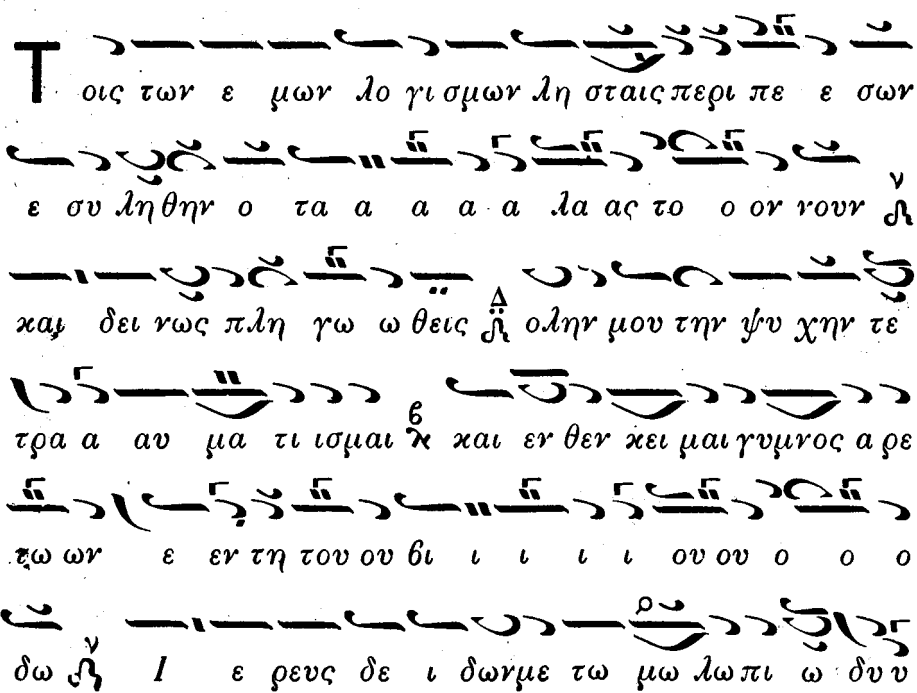 Τοις των ε μων λο γι σμων λη σταις περι πε ε σων
ε συ λη θην ο τα α α α α λα ας το ο ον νουν ν
και δει νως πλη γω ω θεις Δ ολην μου την ψυ χην τε
τρα α αυ μα τι ισμαι β και εν θεν κει μαι γυμνος α ρε
τω ων ε εν τη του ου βι ι ι ι ι ου ου ο ο ο
δω ν Ι ε ρευς δε ι δων με τω μω λωπι ω δυ υ